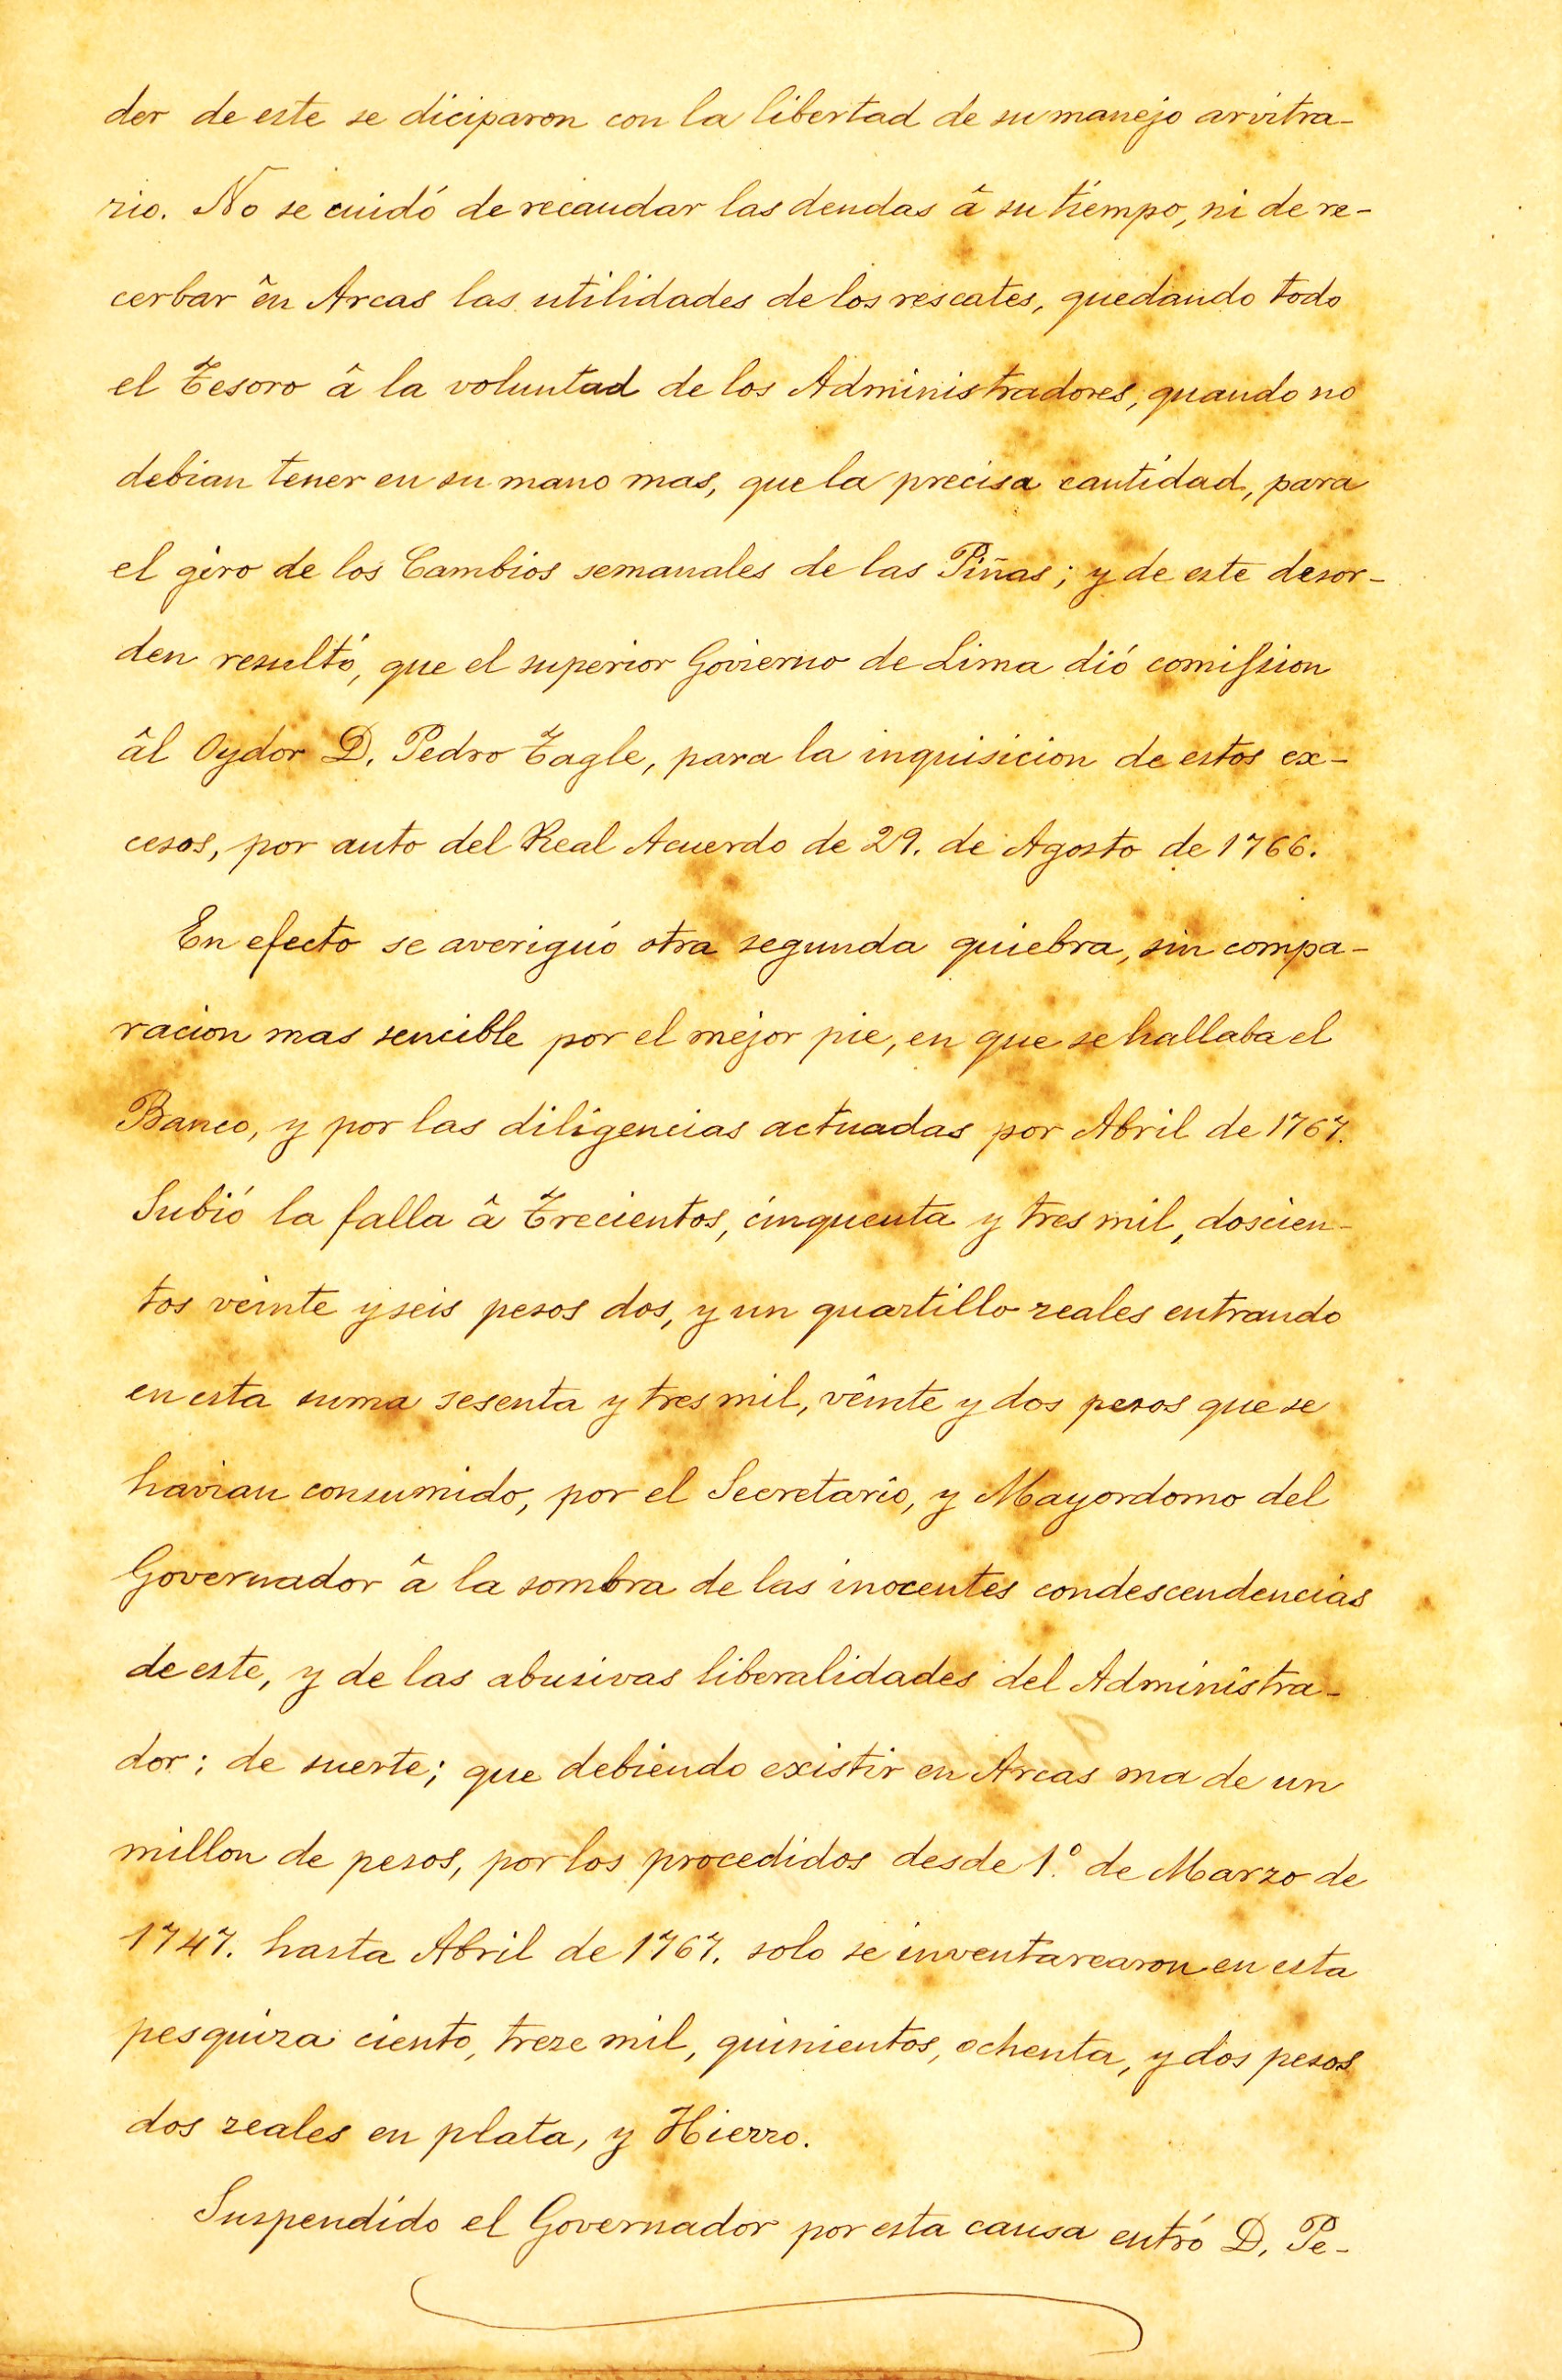 der de este se diciparon con la libertad de su manejo arvitra-
rio. No se cuidó de recaudar las deudas â su tiempo, ni de re-
cerbar ên Arcas las utilidades de los rescates, quedando todo
el Tesoro â la voluntad de los Administradores, quando no
debian tener en su mano mas, que la precisa cantidad, para
el giro de los Cambios semanales de las Piñas; y de este desor-
den resultó, que el superior Govierno de Lima dió comission
âl Oydor D. Pedro Tagle, para la inquisicion de estos ex-
cesos, por auto del Real Acuerdo de 29. de Agosto de 1766.
En efecto se averiguó otra segunda quiebra, sin compa-
racion mas sencible por el mejor pie, en que se hallaba el
Banco, y por las diligencias actuadas por Abril de 1767.
Subió la falla â Trecientos, cinquenta y tres mil, doscien-
tos veinte y seis pesos dos, y un quartillo reales entrando
en esta suma sesenta y tres mil, vêinte y dos pesos que se
havian consumido, por el Secretario, y Mayordomo del
Governador â la sombra de las inocentes condescendencias
de este, y de las abusivas liberalidades del Administra-
dor; de suerte; que debiendo existir en Arcas ma de un
millon de pesos, por los procedidos desde 1.º de Marzo de
1747. hasta Abril de 1767. solo se inventarearon en esta
pesquiza ciento, treze mil, quinientos, ochenta, y dos pesos
dos reales en plata, y Hierro.
Suspendido el Governador por esta causa entró D. Pe-